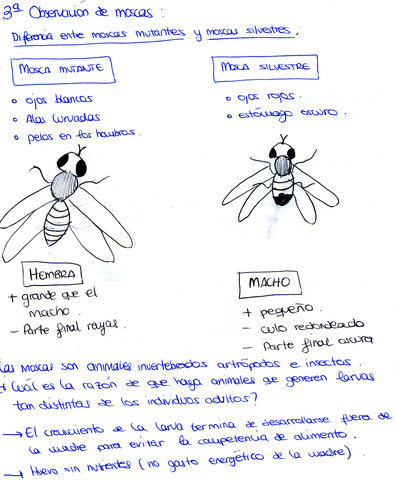 3ª Observación de moscas :
Diferencia entre moscas mutantes y moscas silvestres.
MOSCA MUTANTE
MOSCA SILVESTRE
o ojos blancos
o Alas curvadas
o pelos en los hombros.
o ojos rojos.
o estómago oscuro.
HEMBRA
+ grande que el
macho.
- Parte final rayas.
MACHO
+ pequeño.
- culo redondeado
- Parte final oscura
Las moscas son animales invertebrados artrópodos e insectos.
Cuál es la razón de que haya animales que generen larvas
tan distintas de los individuos adultos?
→ El crecimiento de la larva termina de desarrollarse fuera de
la madre para evitar la competencia de alimento.
→ Huevo sin nutrientes (no gasto energético de la madre).